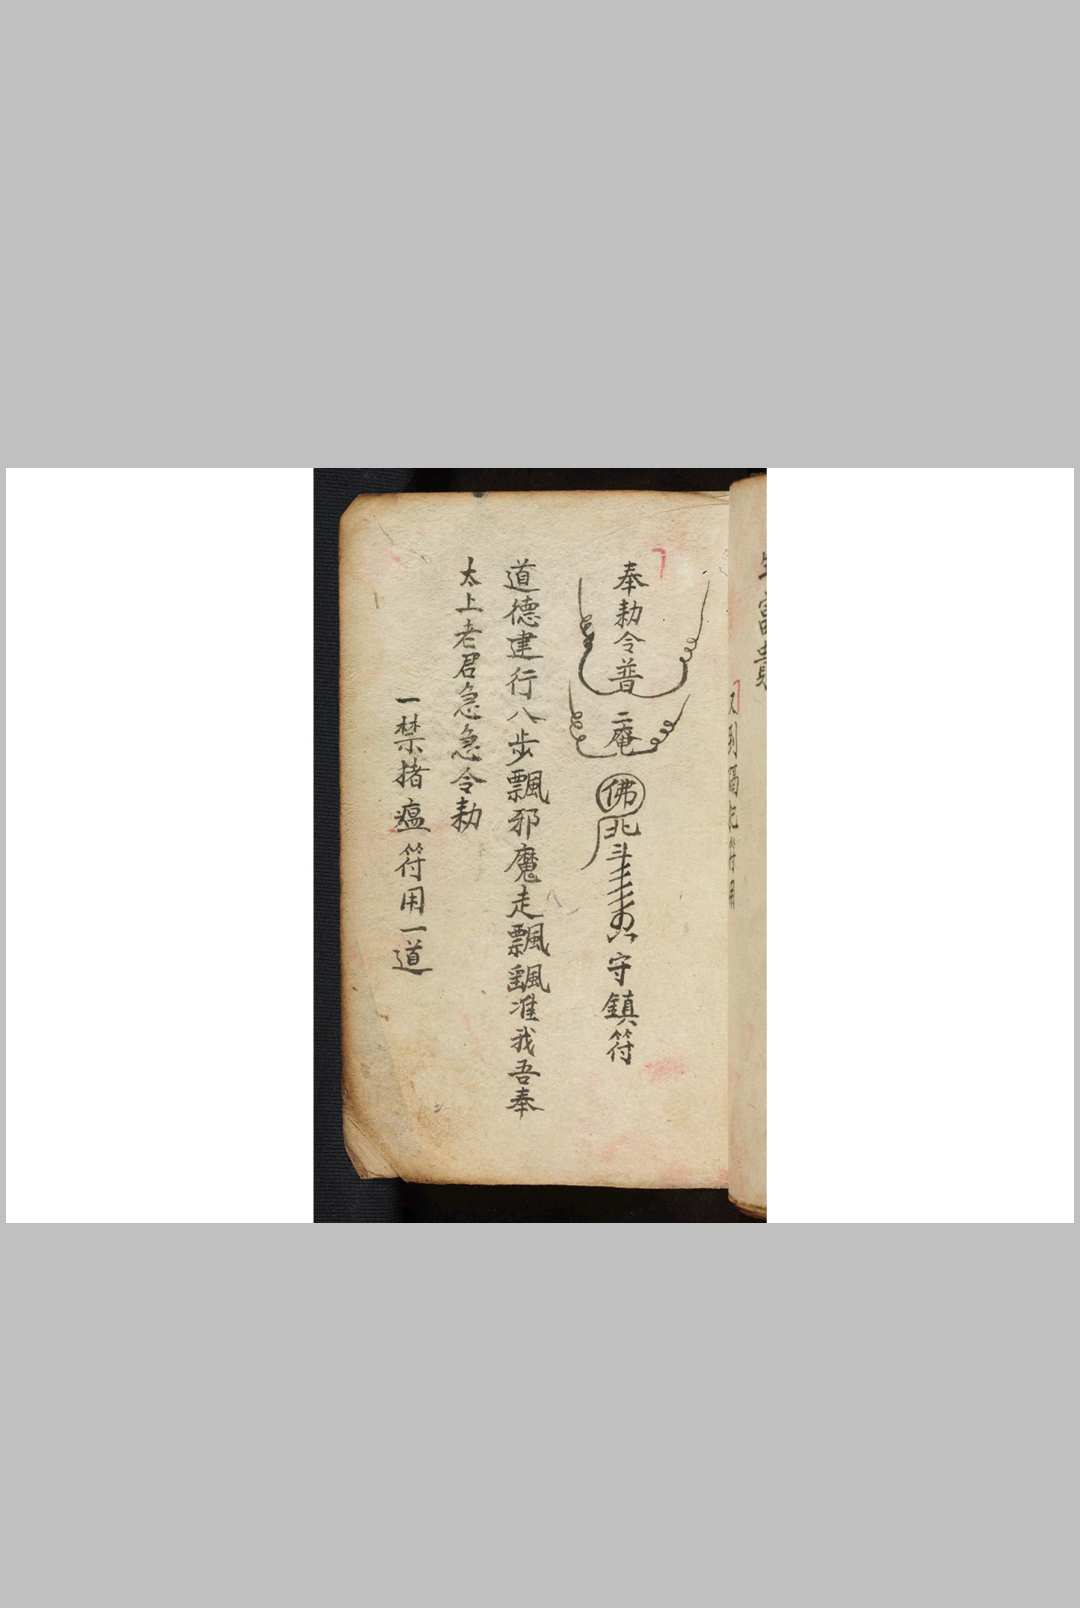 奉勅令普庵佛北斗守鎮符
道德建行八步飄邪魔走飄飖准我吾奉
太上老君急急令勅
一禁猪瘟符用一道
生富貴
符用